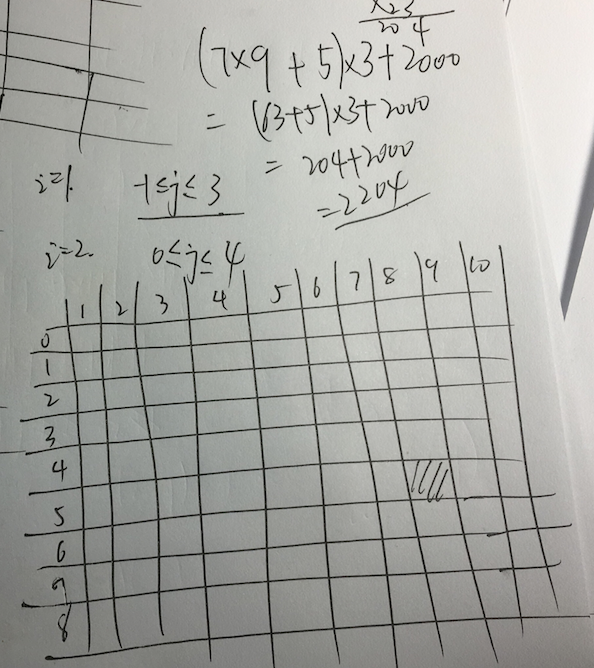 ×23
204
(7×9+5)×3+2000
= (63+5)×3+2000
= 204+2000
=2204
i=1. -1≤j≤3
i=2. 0≤j≤4
1 2 3 4 5 6 7 8 9 10
0
1
2
3
4
5
6
7
8